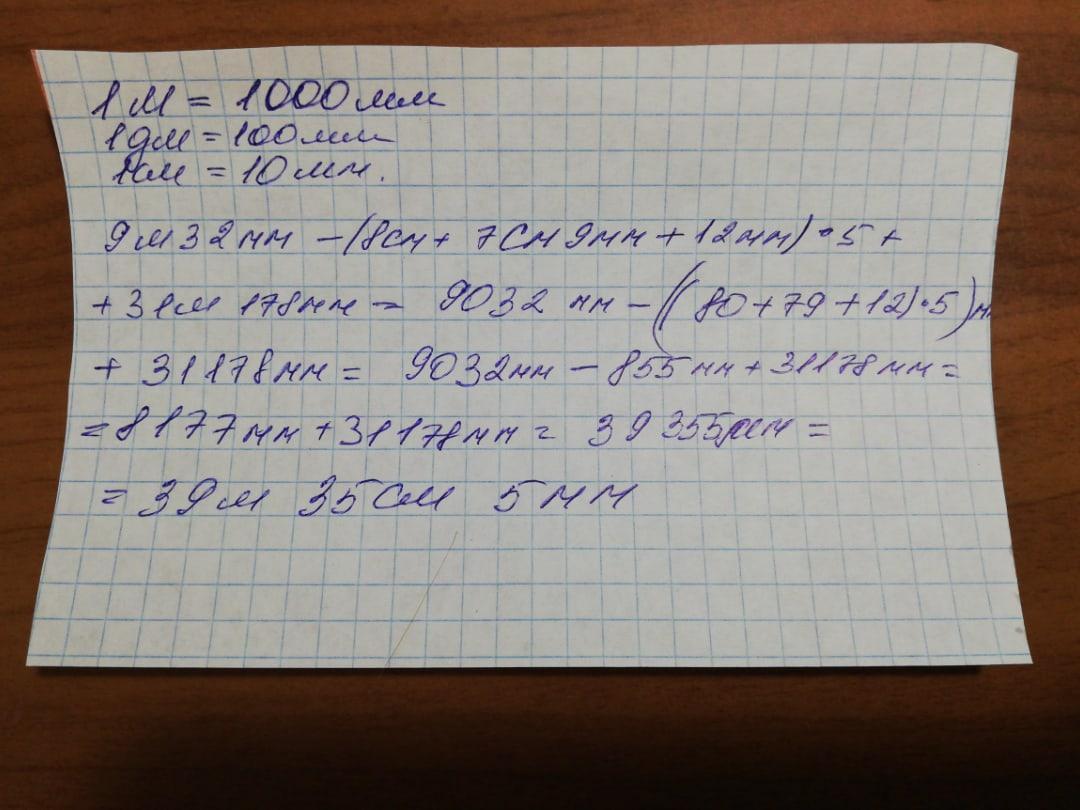 1 м = 1000 мм
1 дм = 100 мм
1 см = 10 мм.
9 м 32 мм - (8 см + 7 см 9 мм + 12 мм) · 5 +
+ 31 м 178 мм = 9032 мм - ((80 + 79 + 12) · 5) мм
+ 31178 мм = 9032 мм - 855 мм + 31178 мм =
= 8177 мм + 31178 мм = 39355 мм =
= 39 м 35 см 5 мм